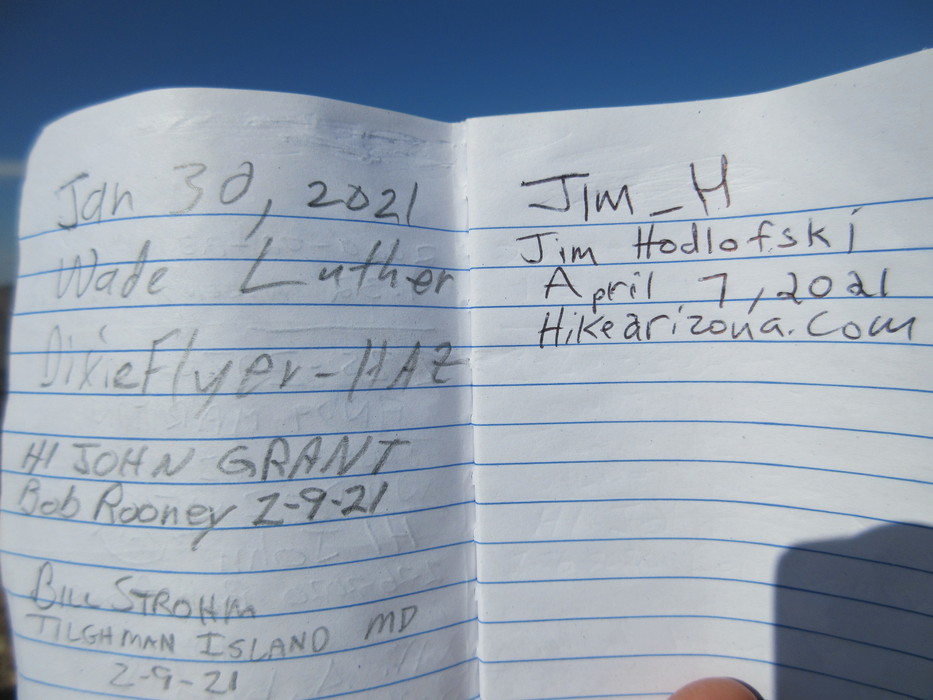 Jan 30, 2021
Wade Luther
DixieFlyer-HAZ
HI JOHN GRANT
Bob Rooney 2-9-21
BILL STROHM
TILGHMAN ISLAND MD
2-9-21
JIM_H
Jim Hodlofski
April 7, 2021
Hikearizona.Com